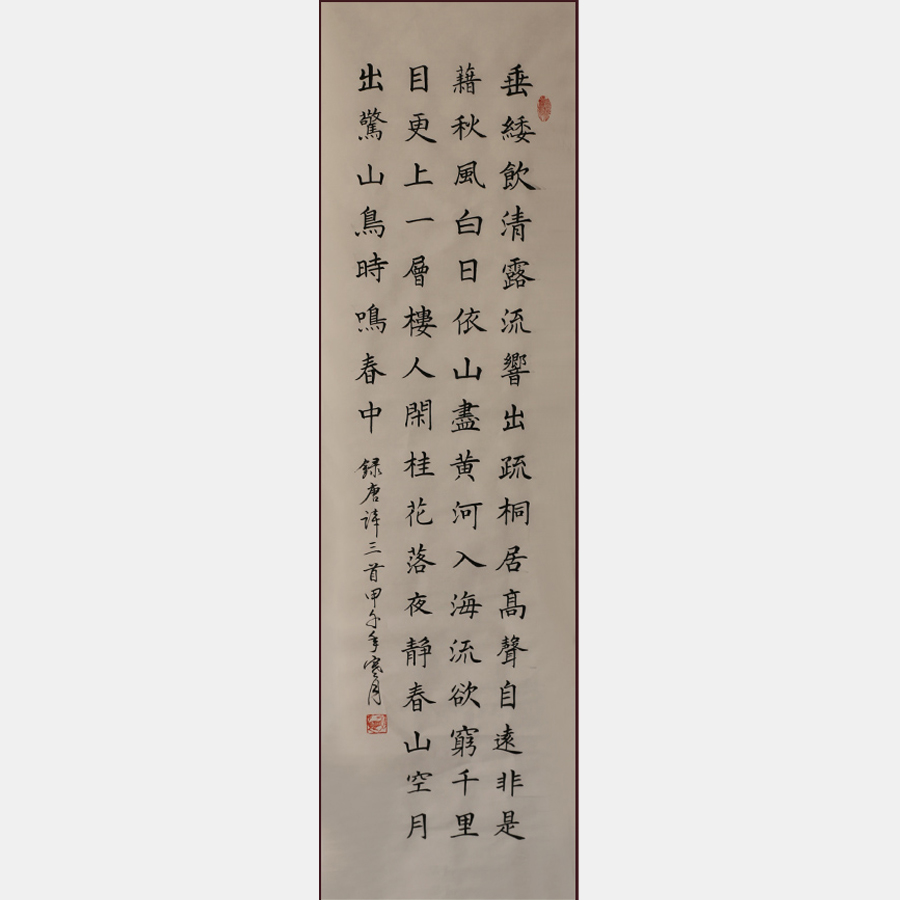 垂緌飲清露流響出疏桐居髙聲自遠非是
藉秋風白日依山盡黄河入海流欲窮千里
目更上一層樓人閑桂花落夜静春山空月
出驚山鳥時鳴春中
録唐詩三首甲午年寒月